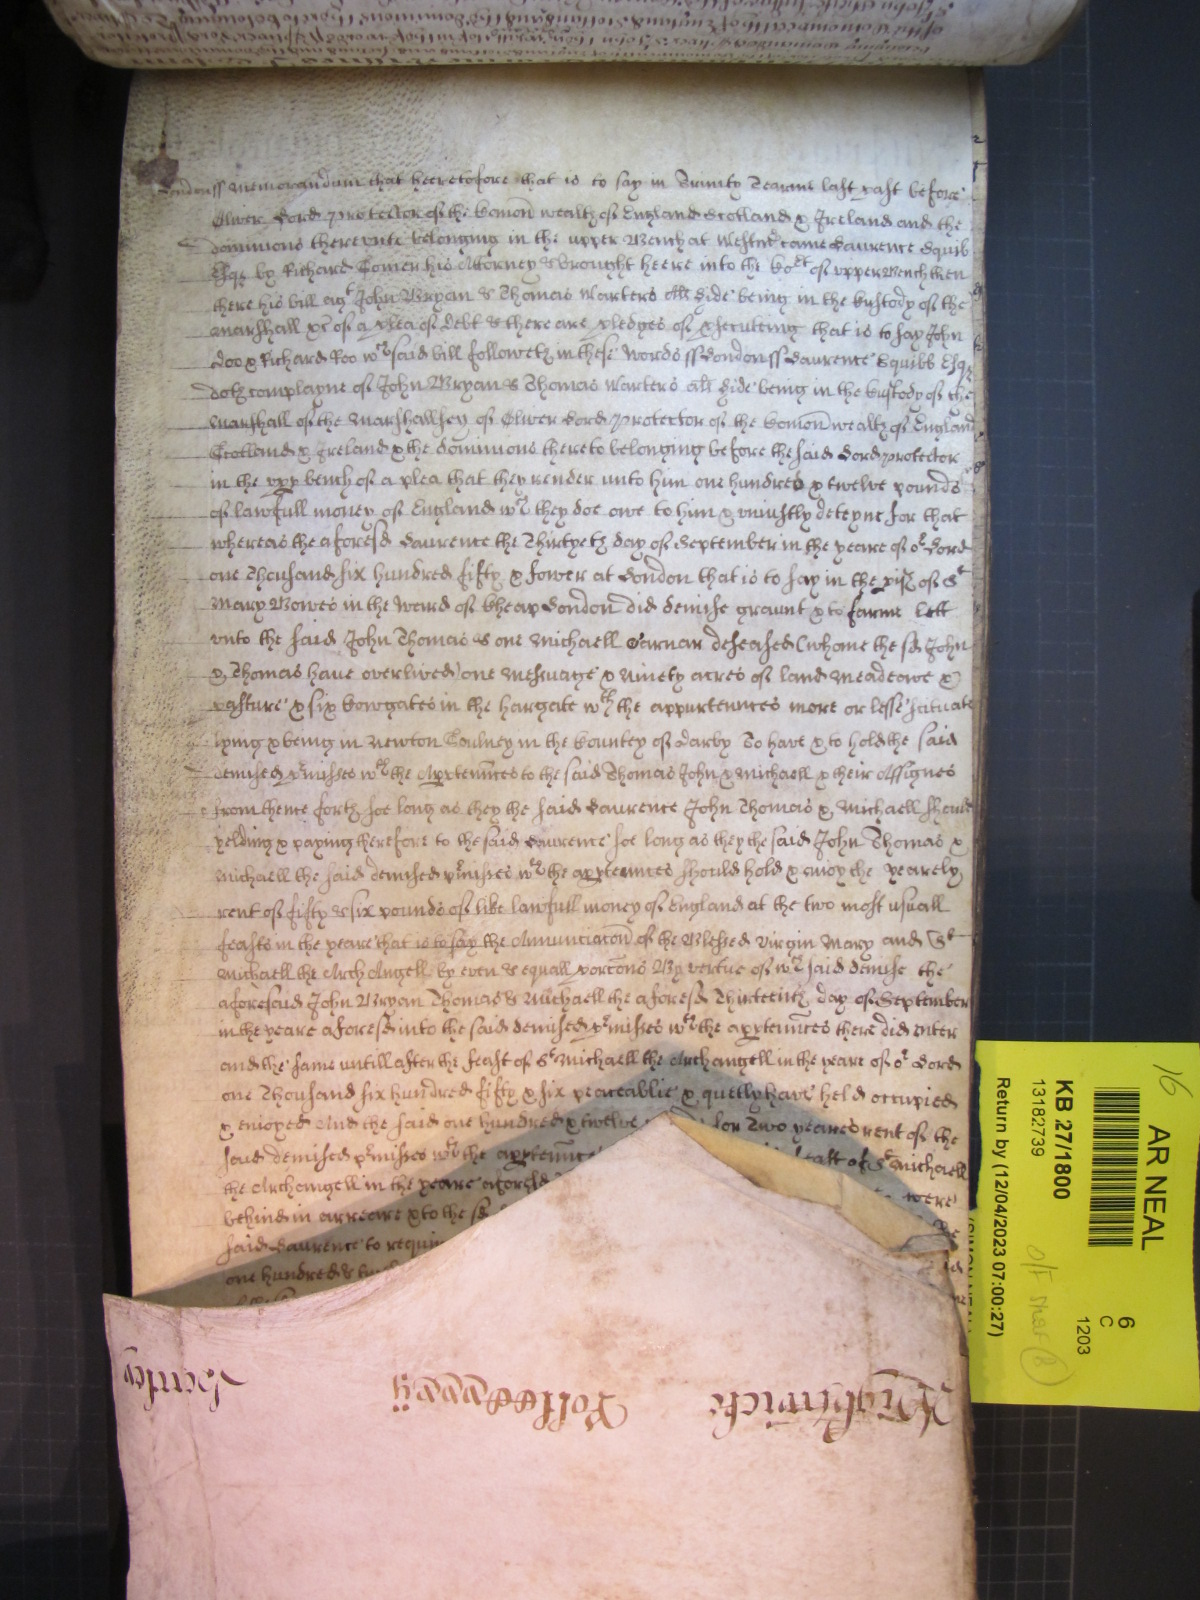 Londonss Memorandum that heeretofore that is to say in Trinity Tearme last past before
Oliver Lord Protector of the Comon wealth of England Scotland & Ireland and the
dominions thereunto belonging in the upper Bench at Westmr came Laurence Squib
Esqr by Richard Tomen his Attorney & brought heere into the Cort of upper Bench then
there his bill agt John Bryan & Thomas Warters als Hide being in the Custody of the
Marshall &c of a plea of debt & there are pledges of prsecutting that is to say John
Doo & Richard Roo wch said bill followeth in these words ss Londonss Laurence Squibb Esqr
doth complayne of John Bryan & Thomas Warters als Hide being in the Custody of the
Marshall of the Marshallsey of Oliver Lord Protector of the Comon wealth of England
Scotland & Ireland & the dominions thereto belonging before the said Lord Protector
in the vpp bench of a plea that they render unto him one hundred & twelve pounds
of lawfull money of England wch they doe owe to him & uniustly deteyne for that
whereas the aforesd Laurence the Thirtyeth day of September in the yeare of or Lord
one Thousand six hundred fifty & fower at London that is to say in the pish of St
Mary Bowes in the Ward of Cheap London did demise graunt & to farme lett
vnto the said John Thomas & one Michaell Carnar deseased (whome the sd John
& Thomas have overlived) one Messuage & Ninety acres of land meadeowe &
pasture & six Cowgates in the hargate wth the appurtennces more or lesse scituate
lying & being in Newton Soulney in the Countey of Darby To have & to hold the said
demised prmisses wth the Apptennces to the said Thomas John & Michaell & their Assignes
from thence forth soe long as they the said Laurence John Thomas & Michaell should
yelding & paying therefore to the said Laurence soe long as they the said John Thomas &
Michaell the said demised prmisses wth the apptennces should hold & enioy the yearely
rent of fifty & six pounds of like lawfull money of England at the two most usuall
feasts in the yeare that is to say the Annunciacon of the Blessed virgin Mary and St
Michaell the Arch Angell by even & equall porcons By vertue of wch said demise the
aforesaid John Bryan Thomas & Michaell the aforesd Thirteenth day of September
in the yeare aforesd into the said demised prmisses wth the apptennces there did enter
and the same untill after the feast of St Michaell the Archangell in the yeare of or Lord
one Thousand six hundred fifty & six peaceablie & quetly have held occupied
& enioyed And the said one hundred & twelve for Two yeares rent of the
said demised prmisses wth the apptennces feast of St Michaell
the Archangell in the yeare aforesd were
behind in arreare & to the sd
said Laurence to requir
one hundred &
AR NEAL
6
C
1203
KB 27/1800
13182739
Return by (12/04/2023 07:00:27)
16